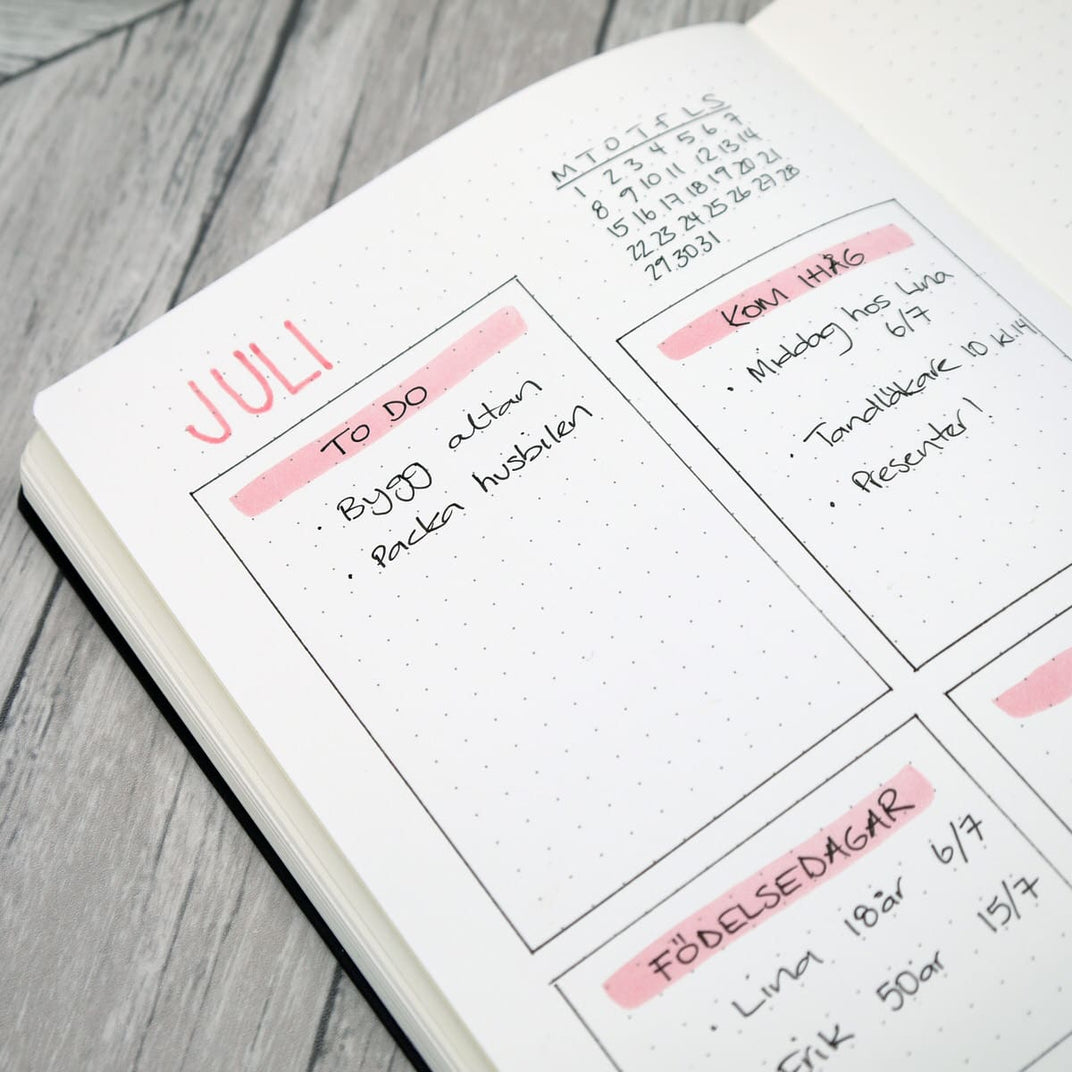 JULI
M T O T F L S
1 2 3 4 5 6 7
8 9 10 11 12 13 14
15 16 17 18 19 20 21
22 23 24 25 26 27 28
29 30 31
TO DO
· Bygg altan
· Packa husbilen
KOM IHÅG
· Middag hos Lina
6/7
· Tandläkare 10 kl.14
· Presenter!
FÖDELSEDAGAR
· Lina 18år 6/7
Erik 50år 15/7